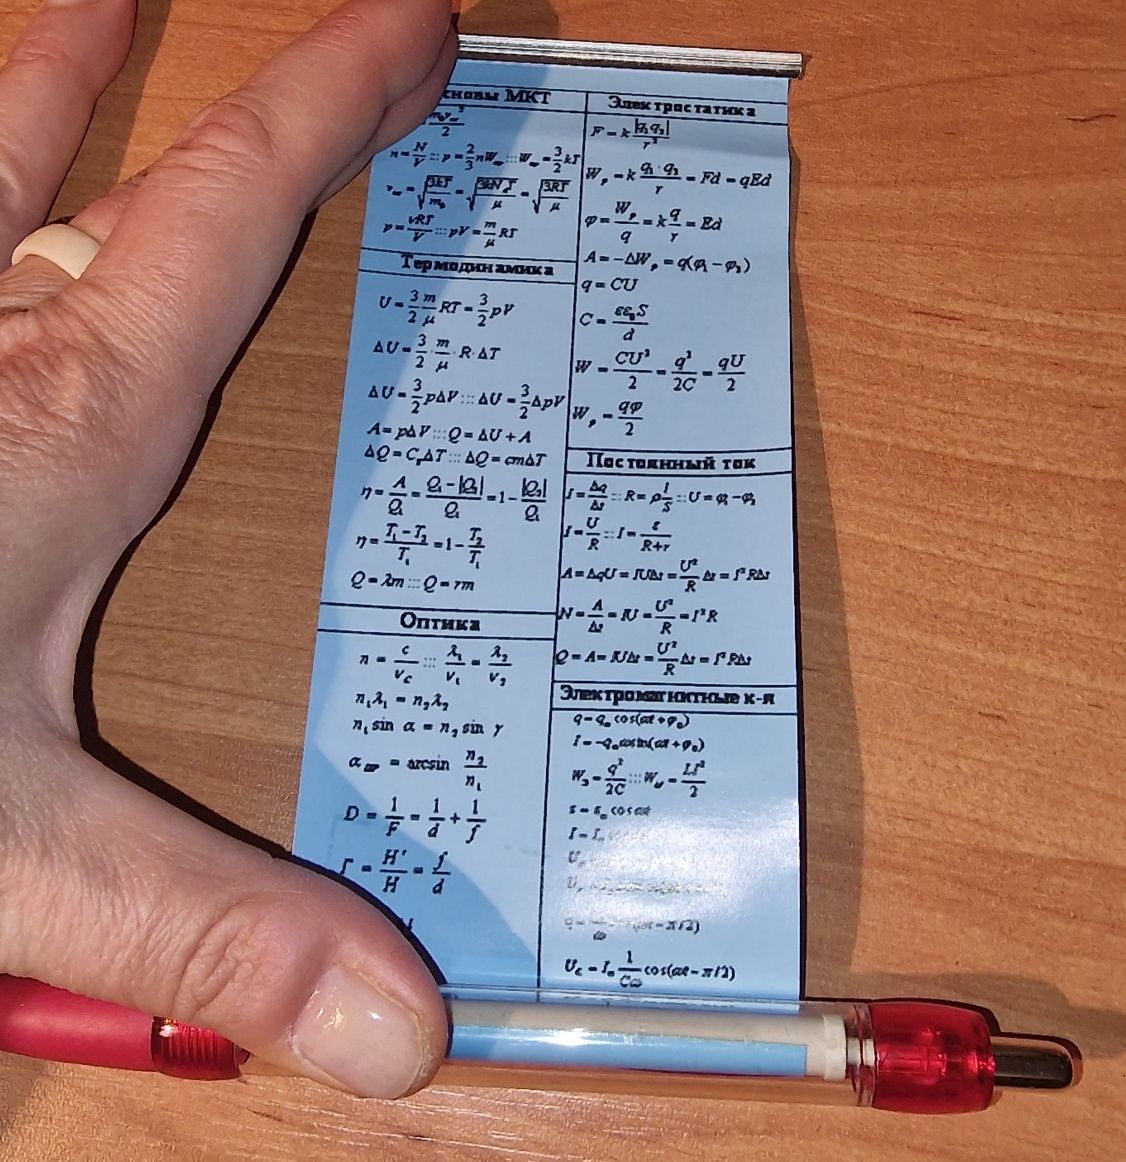 сновы МКТ
m₀v²/2
n = N/V ::: p = 2/3 nW ::: W = 3/2 kT
v = √(3kT/m₀) = √(3kNₐT/μ) = √(3RT/μ)
p = νRT/V ::: pV = m/μ RT
Термодинамика
U = 3/2 m/μ RT = 3/2 pV
ΔU = 3/2 · m/μ · R · ΔT
ΔU = 3/2 pΔV ::: ΔU = 3/2 ΔpV
A = pΔV ::: Q = ΔU + A
ΔQ = CᵥΔT ::: ΔQ = cmΔT
η = A/Q₁ = (Q₁ − |Q₂|)/Q₁ = 1 − |Q₂|/Q₁
η = (T₁ − T₂)/T₁ = 1 − T₂/T₁
Q = λm ::: Q = rm
Оптика
n = c/v_c ::: λ₁/v₁ = λ₂/v₂
n₁λ₁ = n₂λ₂
n₁ sin α = n₂ sin γ
α = arcsin n₂/n₁
D = 1/F = 1/d + 1/f
Г = H'/H = f/d
Электростатика
F = k |q₁q₂|/r²
W_p = k q₁·q₂/r = Fd = qEd
φ = W_p/q = k q/r = Ed
A = −ΔW_p = q(φ₁ − φ₂)
q = CU
C = εε₀S/d
W = CU²/2 = q²/2C = qU/2
W_p = qφ/2
Постоянный ток
I = Δq/Δt ::: R = ρ l/S ::: U = φ₁ − φ₂
I = U/R ::: I = ε/(R+r)
A = ΔqU = IUΔt = U²/R Δt = I²RΔt
N = A/Δt = IU = U²/R = I²R
Q = A = IUΔt = U²/R Δt = I²RΔt
Электромагнитные к-я
q = qₘ cos(ωt + φ₀)
I = −qₘω sin(ωt + φ₀)
W_Э = q²/2C ::: W_M = LI²/2
ε = εₘ cos ωt
I = Iₘ
U
U
q = /ω (ωt − π/2)
U_C = Iₘ 1/Cω cos(ωt − π/2)